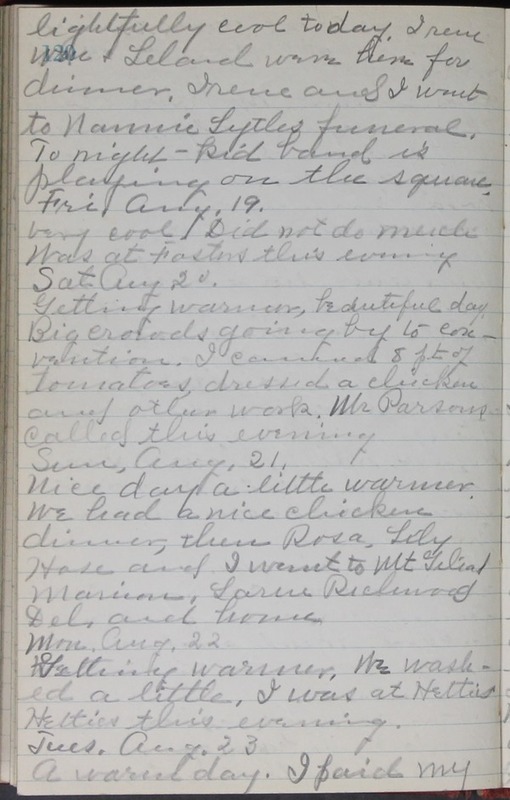 lightfully cool today. Irene
129
& Leland were here for
dinner. Irene and I went
to Nannie Lytles funeral.
To night - Kid band is
playing on the square.
Fri, Aug. 19.
very cool. Did not do much
Was at Fosters this evening
Sat Aug 20.
Getting warmer, beautiful day
Big crowds going by to con-
vention. I canned 8 pts of
tomatoes, dressed a chicken
and other work. Mr Parsons
called this evening
Sun, Aug, 21.
Nice day a little warmer.
We had a nice chicken
dinner, then Rosa, Lily
and I went to Mt Gilead
Marion, Richwood
Del, and home
Mon. Aug, 22
Getting warmer. We wash-
ed a little, I was at Hetties
Hetties this evening.
Tues. Aug. 23
A warm day. I paid my